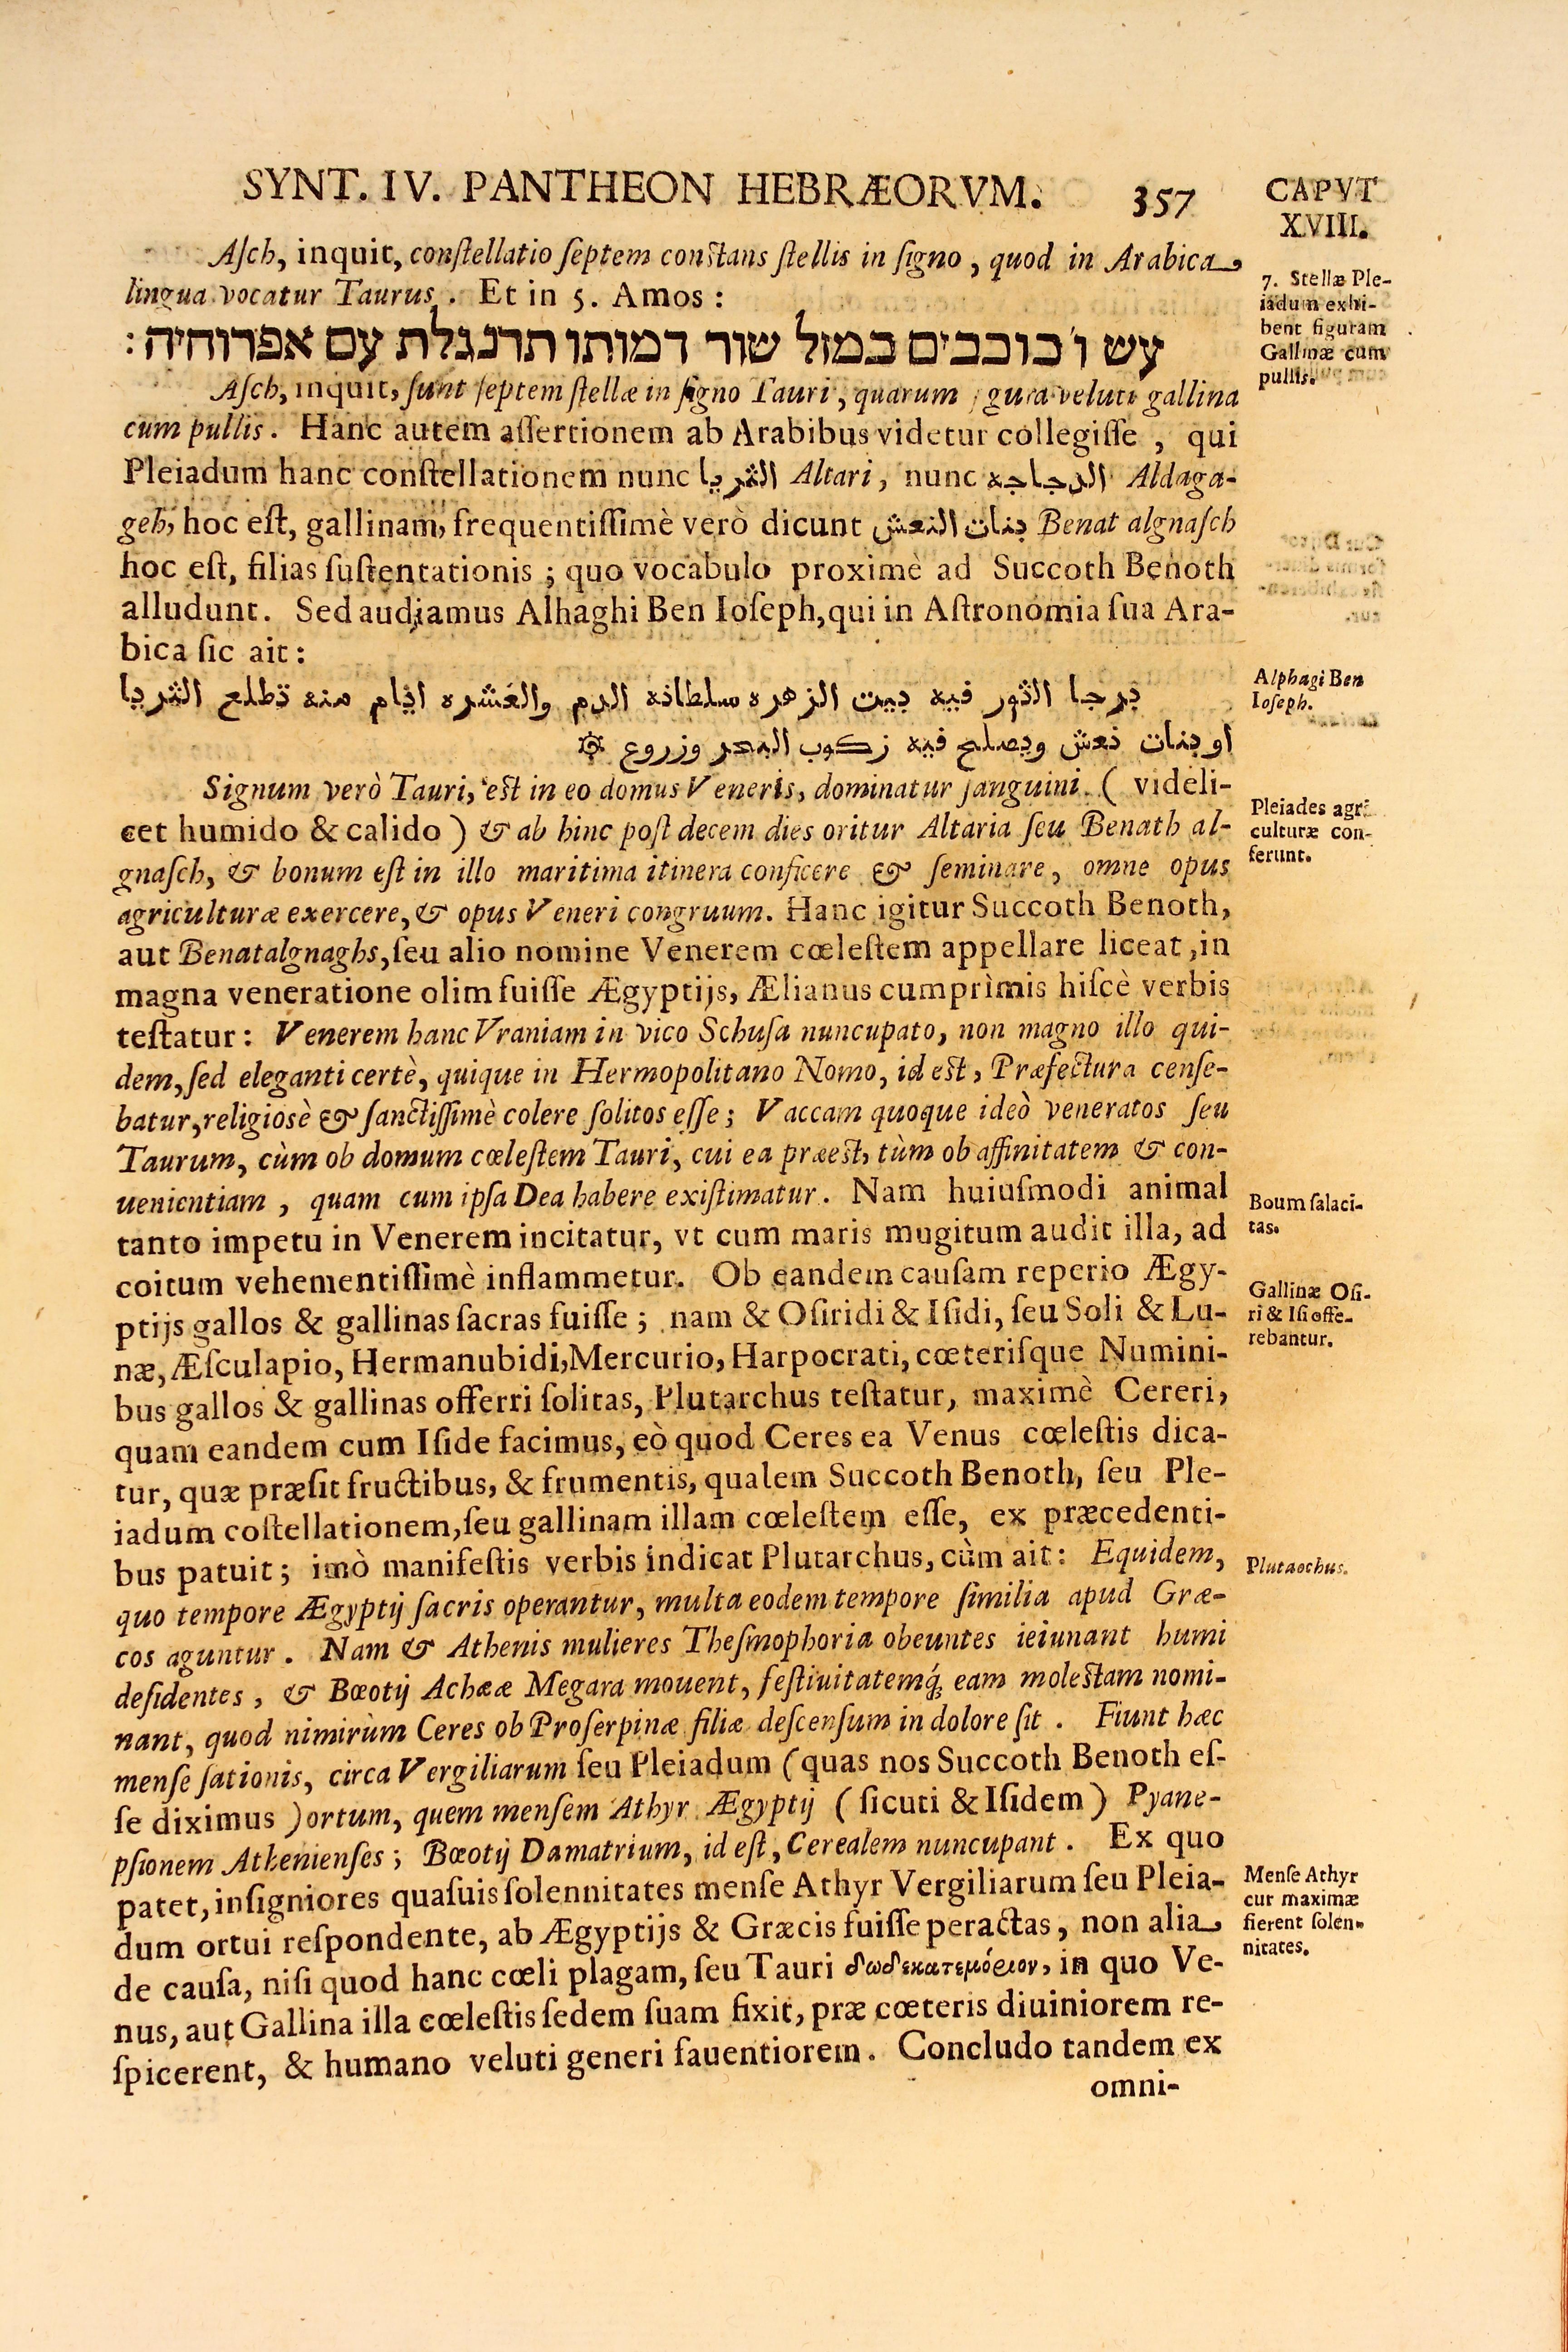 SYNT. IV. PANTHEON HEBRÆORVM. 357
CAPVT
XVIII.
Aſch, inquit, conſtellatio ſeptem conſtans ſtellis in ſigno, quod in Arabica
lingua vocatur Taurus. Et in 5. Amos:
עש ז' כוכבים במזל שור דמותו תרנגלת עם אפרוחיה:
Aſch, inquit, ſunt ſeptem ſtellæ in ſigno Tauri, quarum gura veluti gallina
cum pullis. Hanc autem aſſertionem ab Arabibus videtur collegiſſe, qui
Pleiadum hanc conſtellationem nunc الثريا Altari, nunc الدجاجه Aldaga-
geh, hoc eſt, gallinam, frequentiſſimè verò dicunt بنات النعش Benat algnaſch
hoc eſt, filias ſuſtentationis; quo vocabulo proximè ad Succoth Benoth
alludunt. Sed audiamus Alhaghi Ben Ioſeph, qui in Aſtronomia ſua Ara-
bica ſic ait:
برجا الثور فيه بيت الزهره سلطانه الدم والعشره ايام منه تطلع الثريا
او بنات نعش ويصلح فيه زكوب البحر وزروع
Signum verò Tauri, eſt in eo domus Veneris, dominatur ſanguini. (videli-
cet humido & calido) & ab hinc poſt decem dies oritur Altaria ſeu Benath al-
gnaſch, & bonum eſt in illo maritima itinera conficere & ſeminare, omne opus
agriculturæ exercere, & opus Veneri congruum. Hanc igitur Succoth Benoth,
aut Benatalgnaghs, ſeu alio nomine Venerem cœleſtem appellare liceat, in
magna veneratione olim fuiſſe Ægyptijs, Ælianus cumprìmis hiſcè verbis
teſtatur: Venerem hanc Vraniam in vico Schuſa nuncupato, non magno illo qui-
dem, ſed eleganti certè, quique in Hermopolitano Nomo, id eſt, Præfectura cenſe-
batur, religiosè & ſanctiſſimè colere ſolitos eſſe; Vaccam quoque ideò veneratos ſeu
Taurum, cùm ob domum cœleſtem Tauri, cui ea præeſt, tùm ob affinitatem & con-
uenientiam, quam cum ipſa Dea habere exiſtimatur. Nam huiuſmodi animal
tanto impetu in Venerem incitatur, vt cum maris mugitum audit illa, ad
coitum vehementiſſimè inflammetur. Ob eandem cauſam reperio Ægy-
ptijs gallos & gallinas ſacras fuiſſe; nam & Oſiridi & Iſidi, ſeu Soli & Lu-
næ, Æſculapio, Hermanubidi, Mercurio, Harpocrati, cœteriſque Numini-
bus gallos & gallinas offerri ſolitas, Plutarchus teſtatur, maximè Cereri,
quam eandem cum Iſide facimus, eò quod Ceres ea Venus cœleſtis dica-
tur, quæ præſit fructibus, & frumentis, qualem Succoth Benoth, ſeu Ple-
iadum coſtellationem, ſeu gallinam illam cœleſtem eſſe, ex præcedenti-
bus patuit; imò manifeſtis verbis indicat Plutarchus, cùm ait: Equidem,
quo tempore Ægyptij ſacris operantur, multa eodem tempore ſimilia apud Græ-
cos aguntur. Nam & Athenis mulieres Theſmophoria obeuntes ieiunant humi
deſidentes, & Bœotij Achææ Megara mouent, feſtiuitatemq́; eam moleſtam nomi-
nant, quod nimirùm Ceres ob Proſerpinæ filiæ deſcenſum in dolore ſit. Fiunt hæc
menſe ſationis, circa Vergiliarum ſeu Pleiadum (quas nos Succoth Benoth eſ-
ſe diximus) ortum, quem menſem Athyr Ægyptij (ſicuti & Iſidem) Pyane-
pſionem Athenienſes; Bœotij Damatrium, id eſt, Cerealem nuncupant. Ex quo
patet, inſigniores quaſuis ſolennitates menſe Athyr Vergiliarum ſeu Pleia-
dum ortui reſpondente, ab Ægyptijs & Græcis fuiſſe peractas, non alia
de cauſa, niſi quod hanc cœli plagam, ſeu Tauri δωδεκατεμόριον, in quo Ve-
nus, aut Gallina illa cœleſtis ſedem ſuam fixit, præ cœteris diuiniorem re-
ſpicerent, & humano veluti generi fauentiorem. Concludo tandem ex
omni-
7. Stellæ Ple-
iadum exhi-
bent figuram
Gallinæ cum
pullis.
Alphagi Ben
Ioſeph.
Pleiades agri
culturæ con-
ferunt.
Boum ſalaci-
tas.
Gallinæ Oſi-
ri & Iſi offe-
rebantur.
Plutaochus.
Menſe Athyr
cur maximæ
fierent ſolen-
nitates.